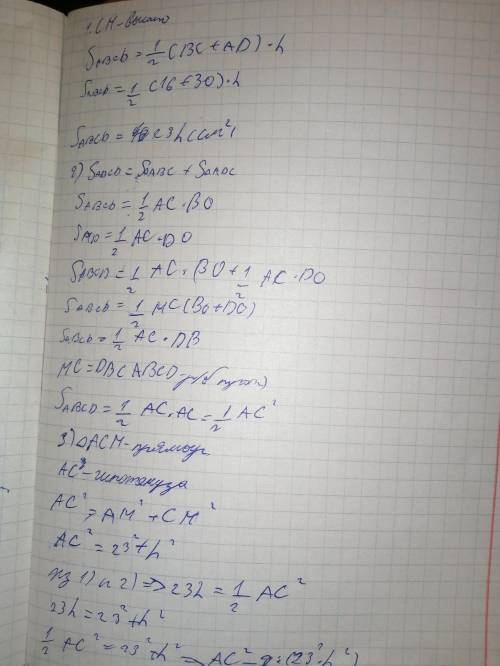 1. CM - высота
S ABCD = 1/2 (BC + AD) · h
S ABCD = 1/2 (16 + 30) · h
S ABCD = 23h (см²)
2) S ABCD = S△ABC + S△ADC
S ABCD = 1/2 AC · BO
S AD = 1/2 AC · DO
S ABCD = 1/2 AC · BO + 1/2 AC · DO
S ABCD = 1/2 AC (BO + DO)
S ABCD = 1/2 AC · DB
AC = DB ( ABCD -
S ABCD = 1/2 AC · AC = 1/2 AC²
3) △ACM - прямоуг
AC - гипотенуза
AC² = AM² + CM²
AC² = 23² + h²
из 1) и 2) => 23h = 1/2 AC²
23h = 23² + h²
1/2 AC² = 23² + h² => AC² = 2 · (23² + h²)